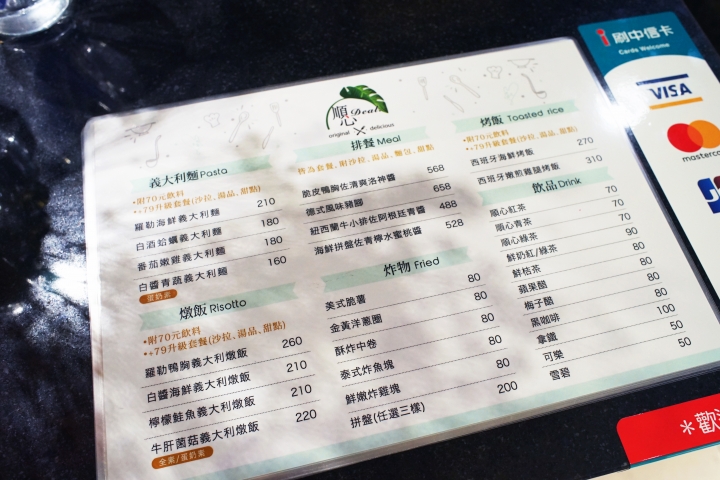 順心 Deal
original × delicious
義大利麵 Pasta
•附70元飲料
•+79升級套餐(沙拉、湯品、甜點)
羅勒海鮮義大利麵 210
白酒蛤蠣義大利麵 180
番茄嫩雞義大利麵 180
白醬青蔬義大利麵 160
蛋奶素
燉飯 Risotto
•附70元飲料
•+79升級套餐(沙拉、湯品、甜點)
羅勒鴨胸義大利燉飯 260
白醬海鮮義大利燉飯 210
檸檬鮭魚義大利燉飯 210
牛肝菌菇義大利燉飯 220
全素/蛋奶素
排餐 Meal
皆為套餐、附沙拉、湯品、麵包、甜點
脆皮鴨胸佐清爽洛神醬 568
德式風味豬腳 658
紐西蘭牛小排佐阿根廷青醬 488
海鮮拼盤佐青檸水蜜桃醬 528
炸物 Fried
美式脆薯 80
金黃洋蔥圈 80
酥炸中卷 80
泰式炸魚塊 80
鮮嫩炸雞塊 80
拼盤(任選三樣) 200
烤飯 Toasted rice
•附70元飲料
•+79升級套餐(沙拉、湯品、甜點)
西班牙海鮮烤飯 270
西班牙嫩煎雞腿烤飯 310
飲品 Drink
順心紅茶 70
順心青茶 70
順心綠茶 70
鮮奶紅/綠茶 90
鮮桔茶 80
蘋果醋 80
梅子醋 80
黑咖啡 80
拿鐵 100
可樂 50
雪碧 50
刷中信卡
Cards Welcome
VISA
masterc
＊歡